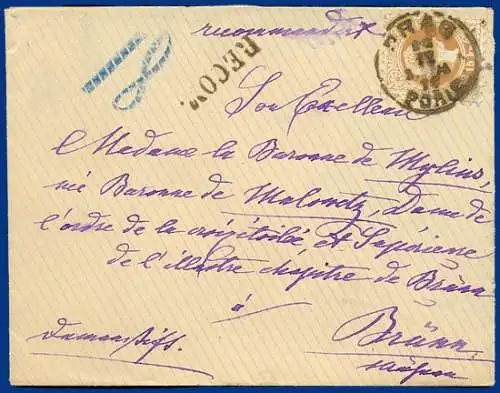 recommandée
RECOM.
PRAG
PORIC
Son Excellence
Madame la Baronne de Mylius,
née Baronne de Malowetz, Dame de
l'ordre de la croix étoilée et Supérieure
de l'illustre chapitre de Brünn
à
Brünn
Damenstift.